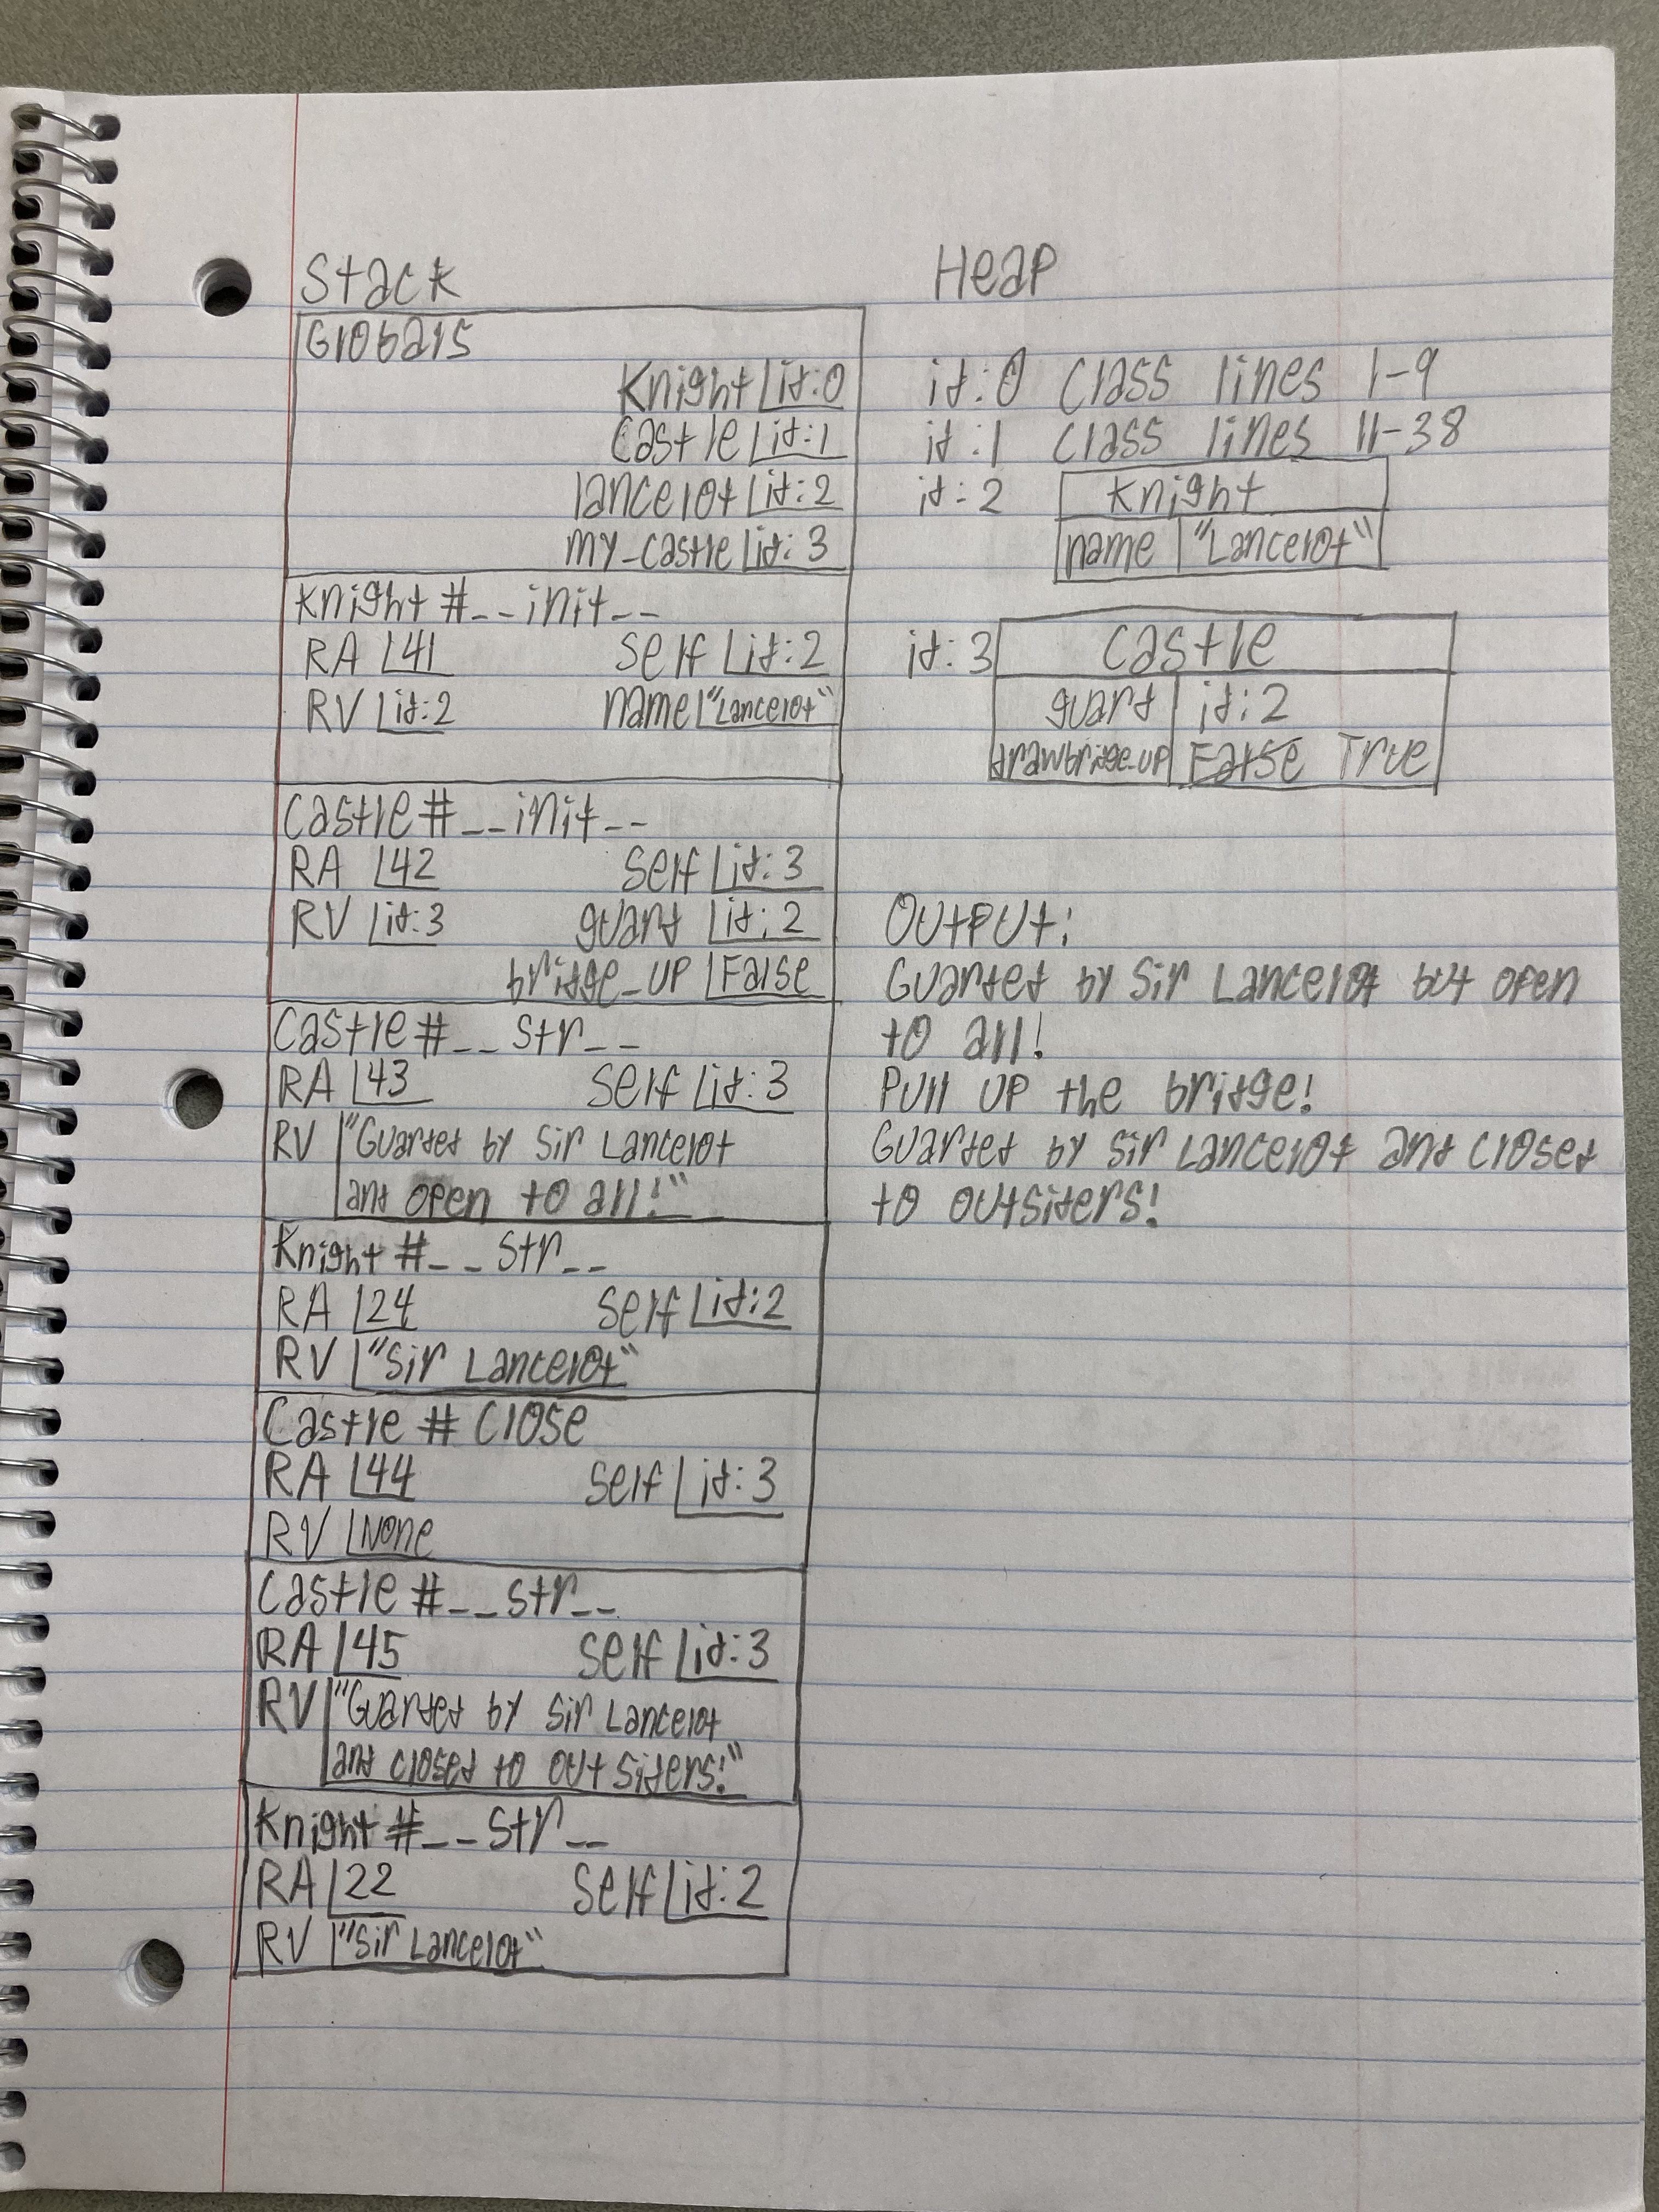 Stack
Globals
Knight id:0
Castle id:1
lancelot id:2
my_castle id:3
Knight #__init__
RA 41 self id:2
RV id:2 name "Lancelot"
Castle #__init__
RA 42 self id:3
RV id:3 guard id:2
bridge_up False
Castle #__str__
RA 43 self id:3
RV "Guarded by Sir Lancelot
and open to all!"
Knight #__str__
RA 24 self id:2
RV "Sir Lancelot"
Castle # close
RA 44 self id:3
RV None
Castle #__str__
RA 45 self id:3
RV "Guarded by Sir Lancelot
and closed to outsiders!"
Knight #__str__
RA 22 self id:2
RV "Sir Lancelot"
Heap
id:0 Class lines 1-9
id:1 Class lines 11-38
id:2 Knight
name "Lancelot"
id:3 Castle
guard id:2
drawbridge_up False True
Output:
Guarded by Sir Lancelot but open
to all!
Pull up the bridge!
Guarded by Sir Lancelot and closed
to outsiders!